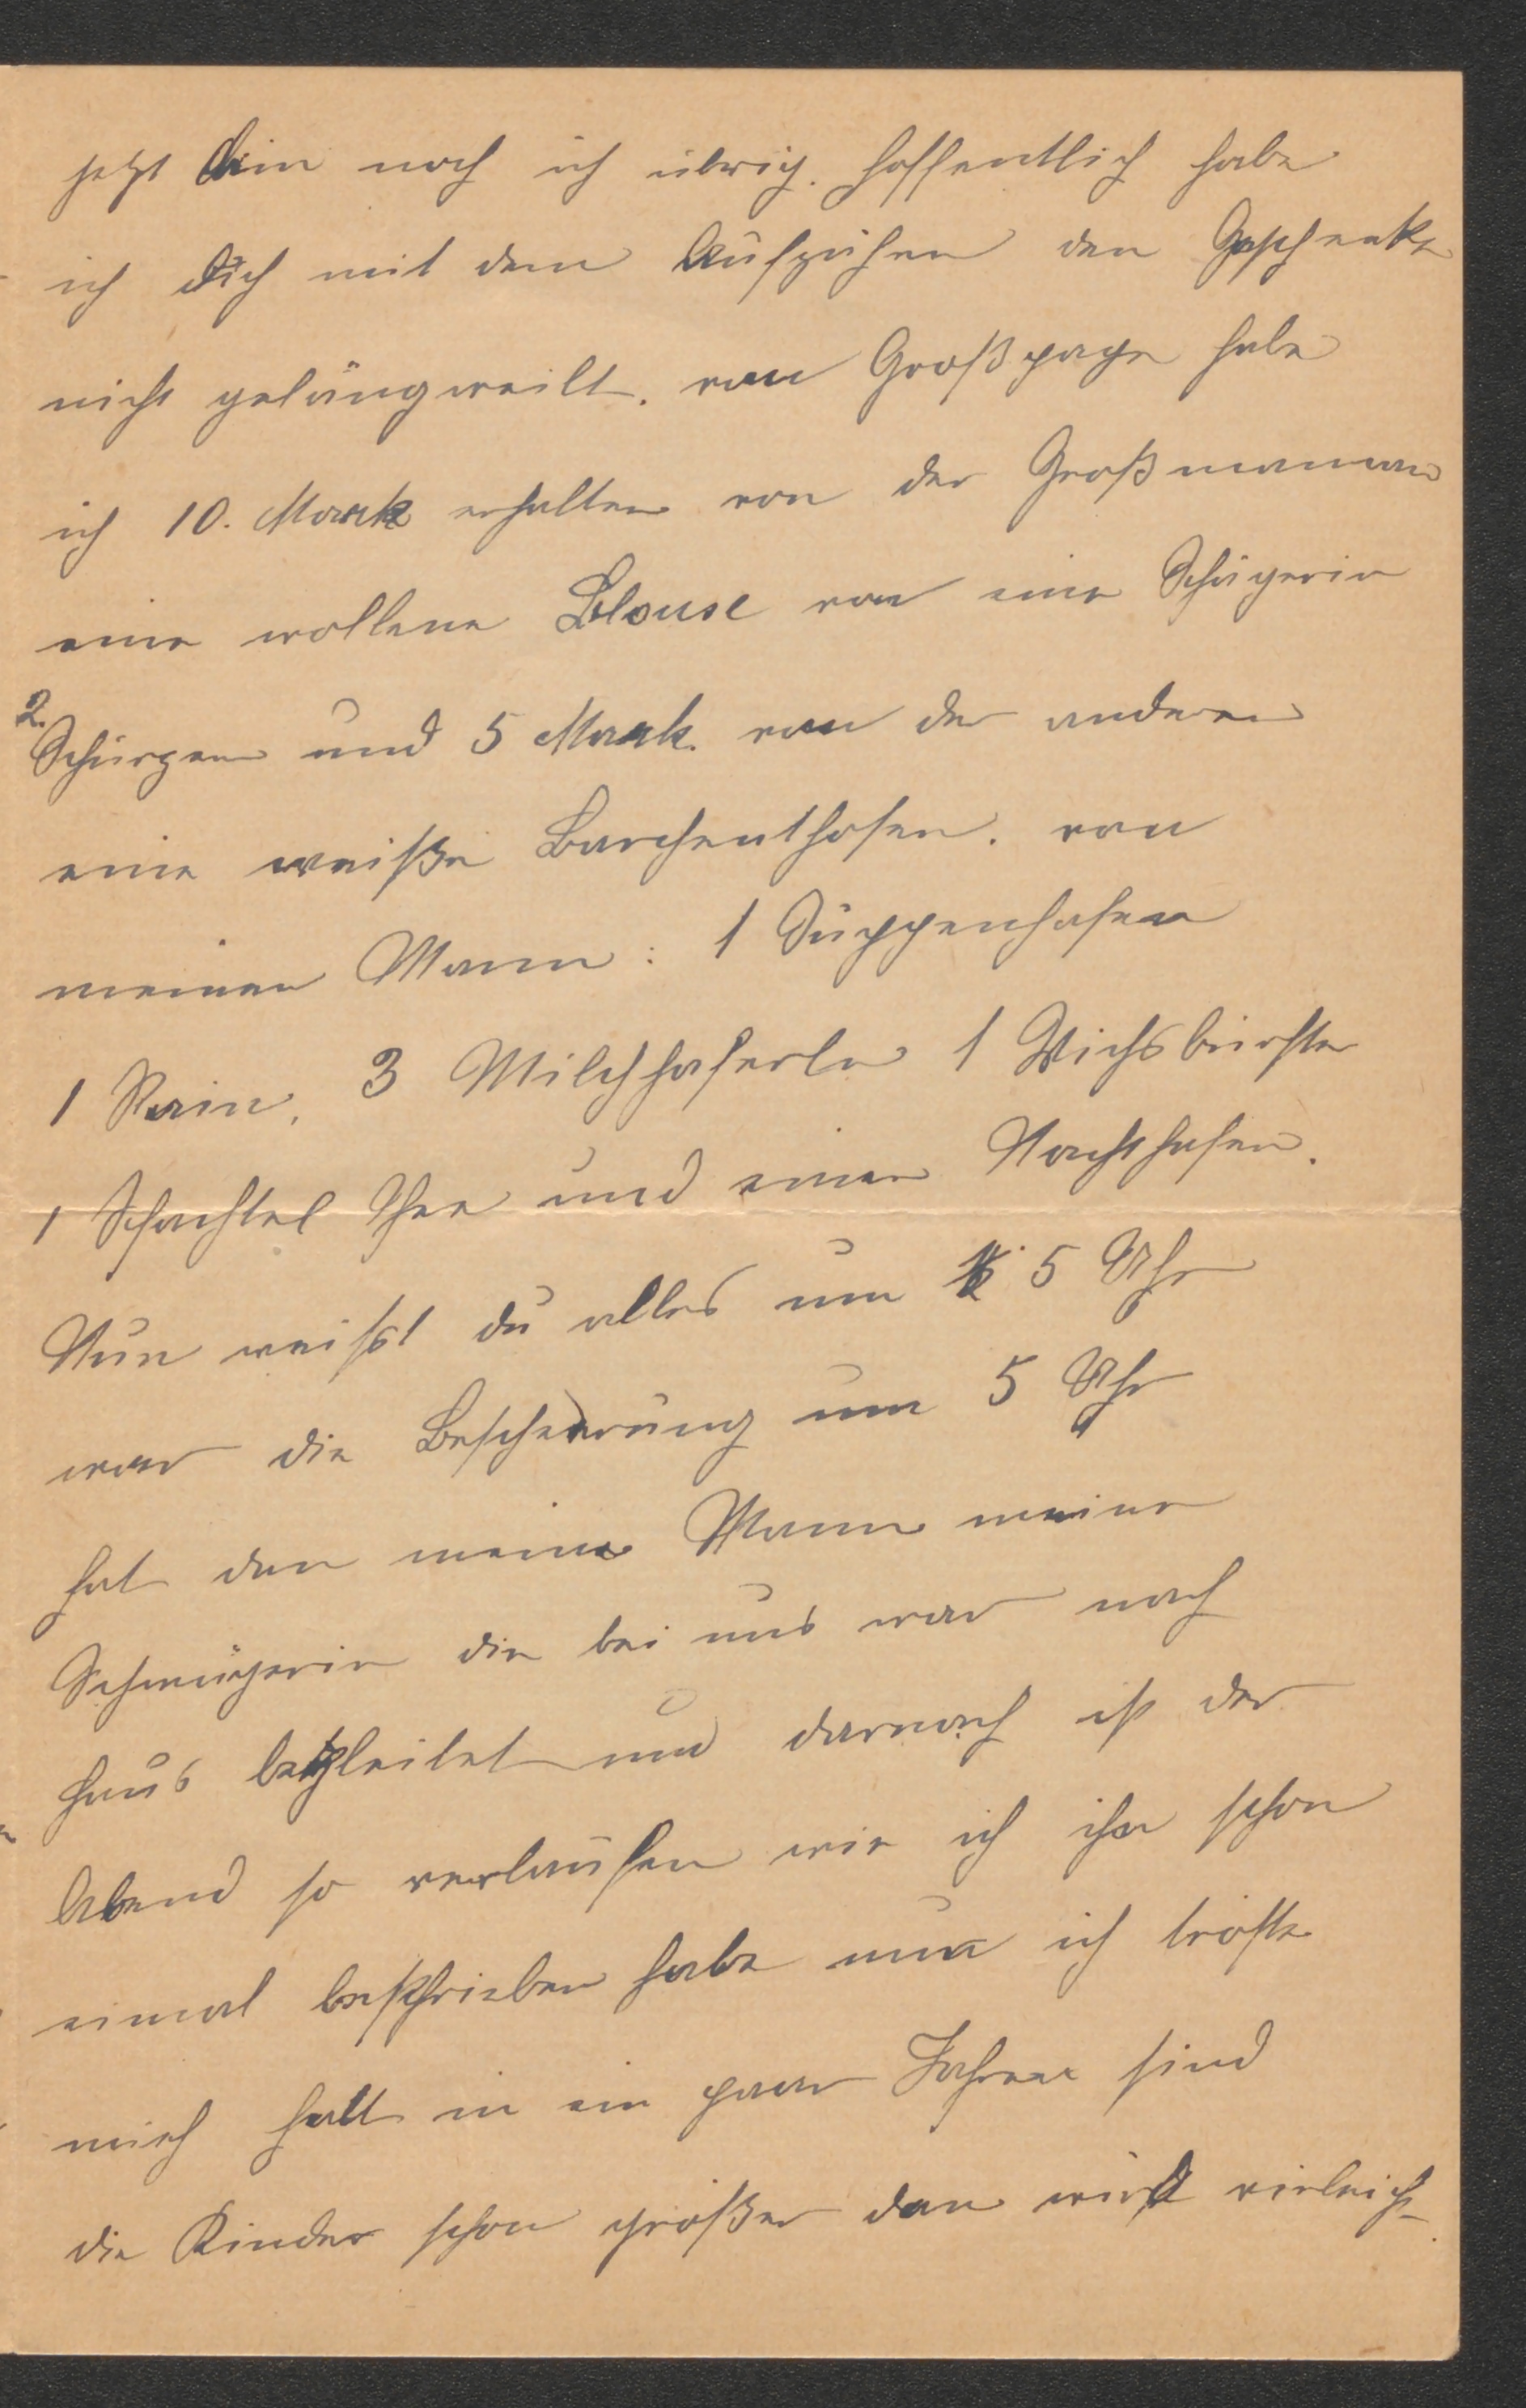 jetzt bin noch ich übrig. hoffentlich habe
ich dich mit dem Aufzühen den Geschenke
nicht gelängweilt. von Großpapa habe
ich 10. Mark erhalten von der Großmaman
eine wollene Blouse von eine Schügerin
2. Schürzen und 5 Mark. von der anderen
eine weiße Barchenthosen. von
meinen Mann: 1 Suppenhafen
1 Rein, 3 Milchhaferln 1 Wichsbürste
1 Schachtel Thee und einen Nachthafen.
Nun weißt du alles um 5 Uhr
war die Bescherung um 5 Uhr
hat den meine Mann meine
Schwägerin die bei uns war nach
Haus begleitet und darnach ist der
Abend so verlaufen wie ich ihn schon
einmal beschrieben habe nun ich tröste
mich halt in ein paar Jahren sind
die Kinder schon größer dan wird vieleicht